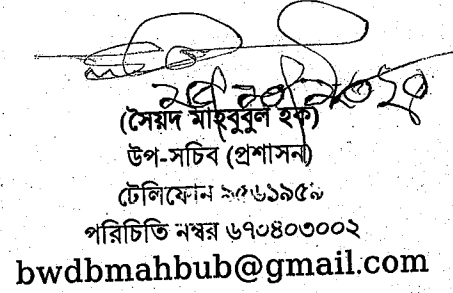 (সৈয়দ মাহবুবুল হক)
উপ-সচিব (প্রশাসন)
টেলিফোন ৯৫৬১৯৫৯
পরিচিতি নম্বর ৬৭০৪০৩০০২
bwdbmahbub@gmail.com